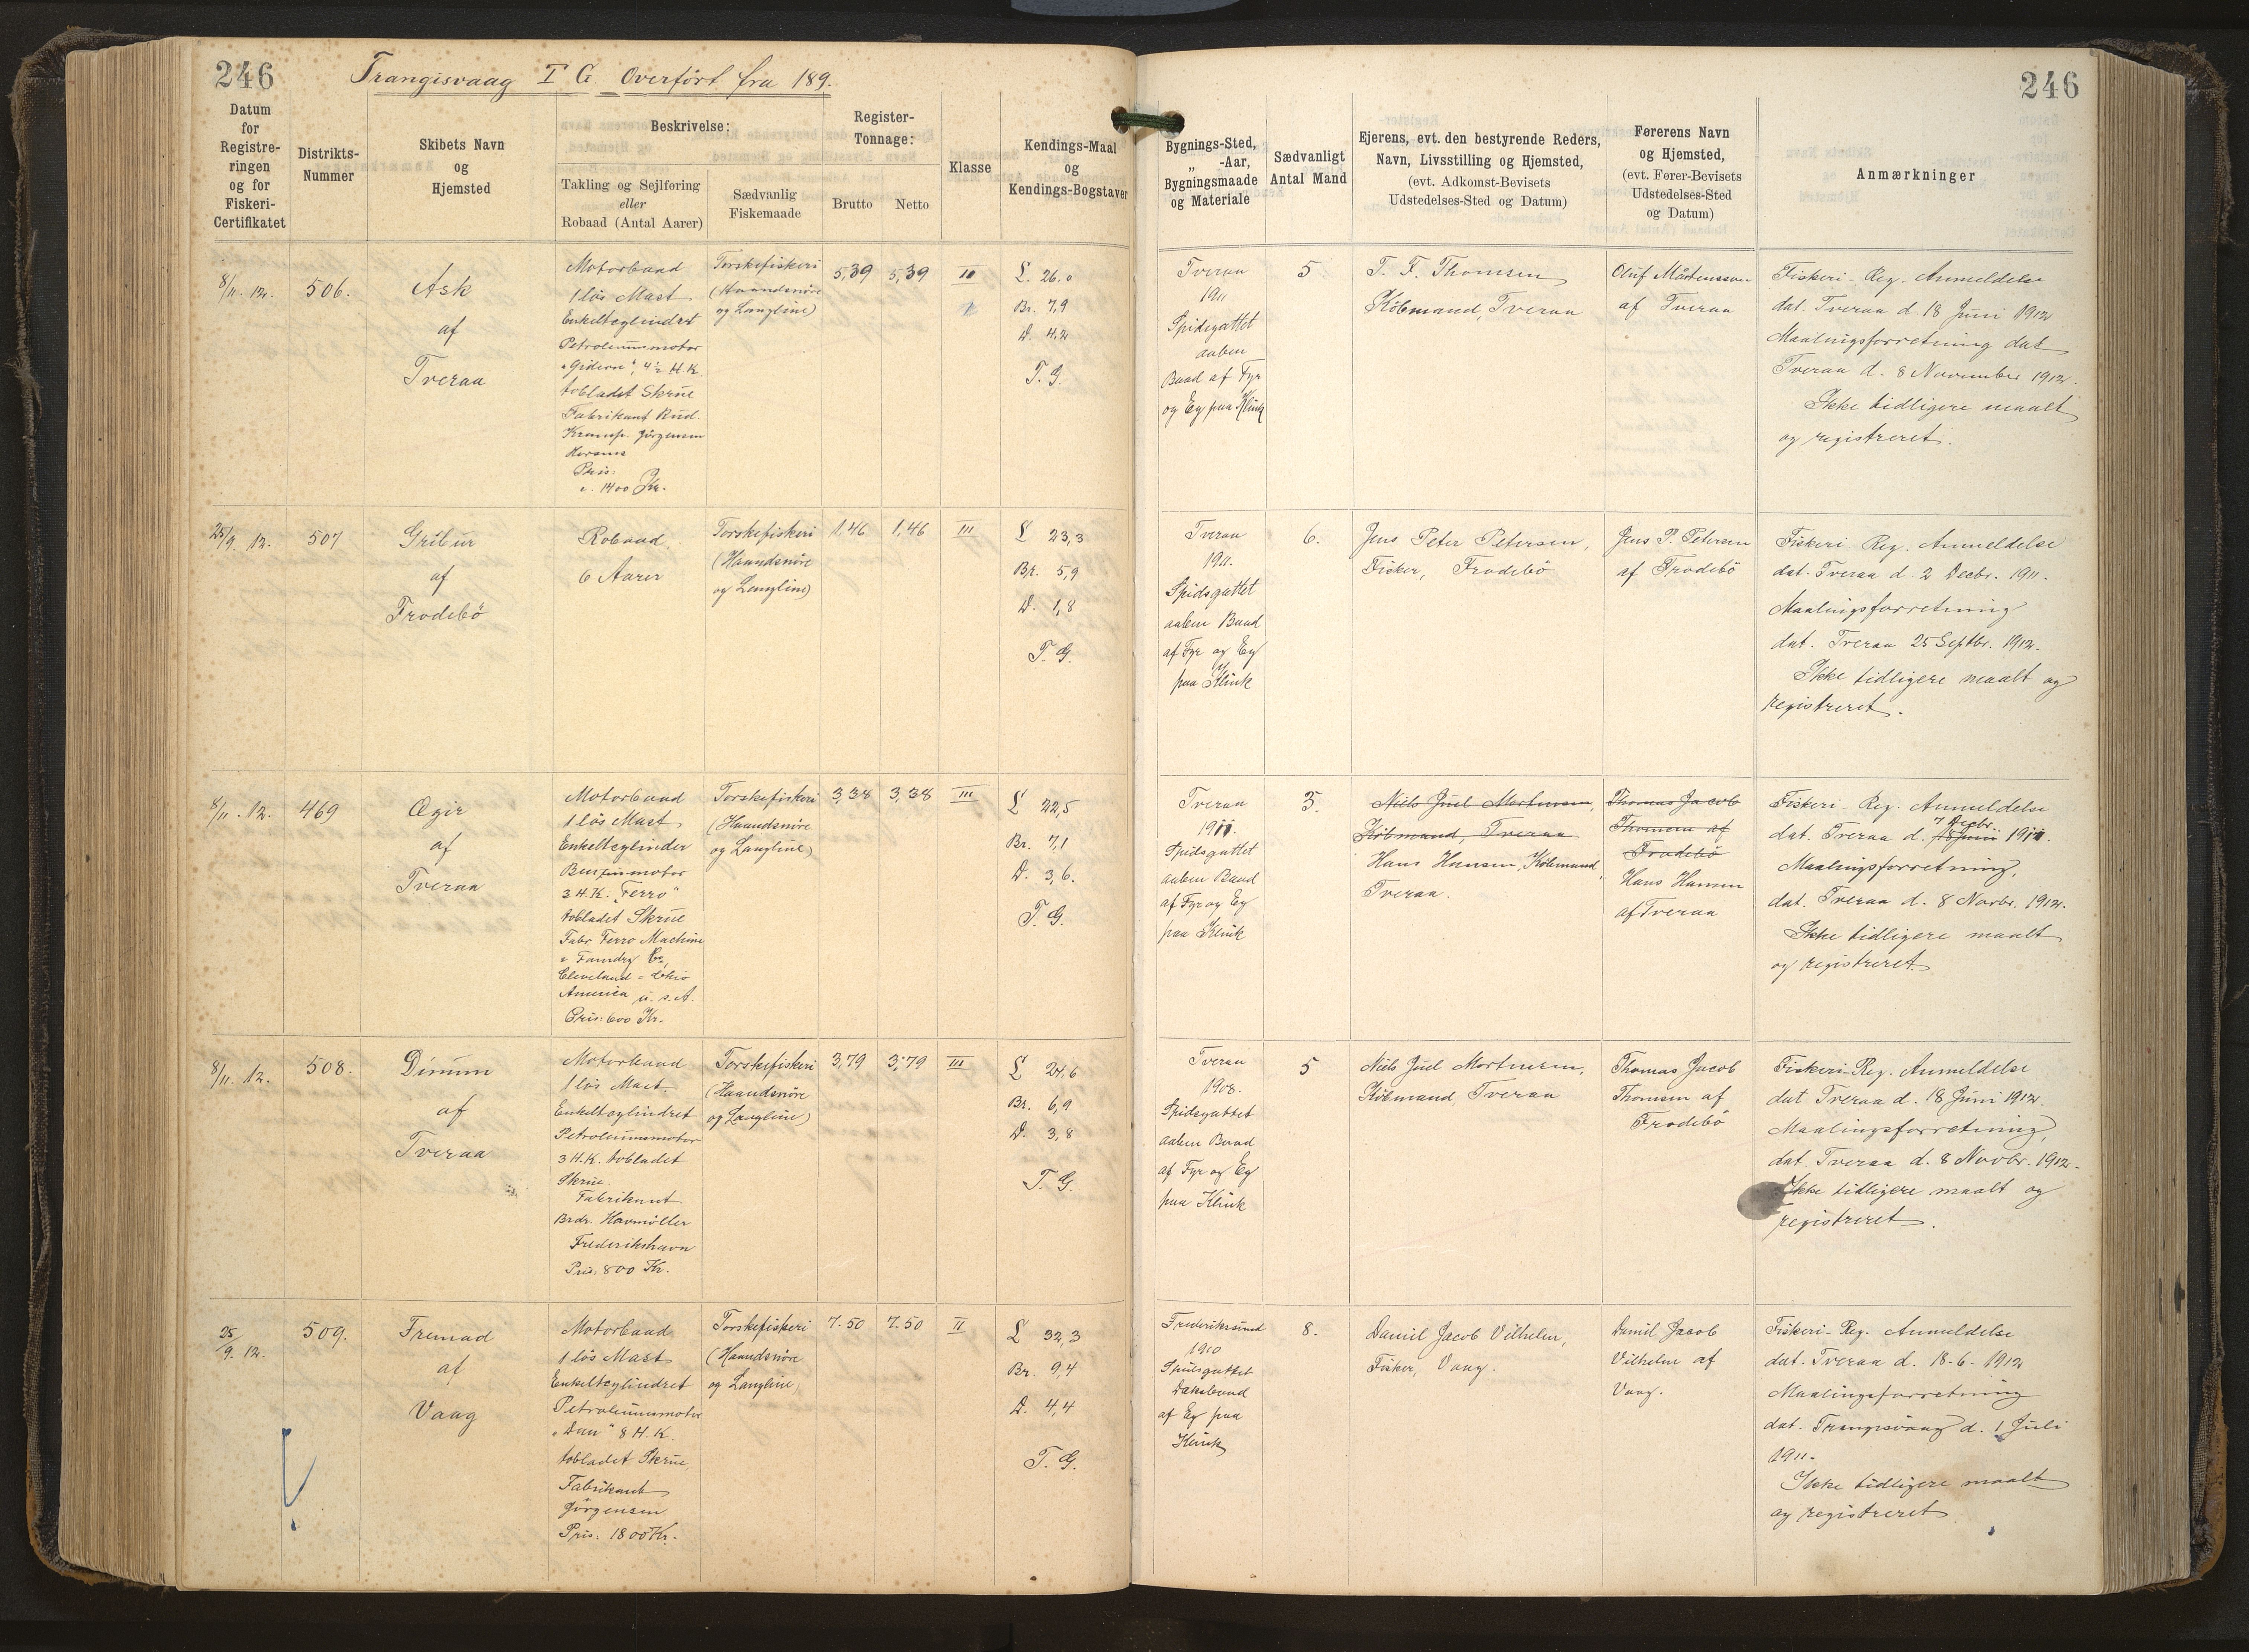 246
Trangisvaag T G Overfört fra 189.
246
Datum
for
Registre-
ringen
og for
Fiskeri-
Certifikatet
Distrikts-
Nummer
Skibets Navn
og
Hjemsted
Beskrivelse:
Takling og Sejlføring
eller
Robaad (Antal Aarer)
Sædvanlig
Fiskemaade
Register-
Tonnage:
Brutto
Netto
Klasse
Kendings-Maal
og
Kendings-Bogstaver
Bygnings-Sted,
„ -Aar,
Bygningsmaade
og Materiale
Sædvanligt
Antal Mand
Ejerens, evt. den bestyrende Reders,
Navn, Livsstilling og Hjemsted,
(evt. Adkomst-Bevisets
Udstedelses-Sted og Datum)
Førerens Navn
og Hjemsted,
(evt. Fører-Bevisets
Udstedelses-Sted
og Datum)
Anmærkninger
8/11. 12.
506.
Ask
af
Tveraa
Motorbaad
1 lös Mast
Enkeltcylindret
Petroleumsmotor
„Gideon", 4½ H.K.
tobladet Skrue
Fabrikant Rud.
Kramp. Jörgensen
Horsens
Pris:
c. 1400 Kr.
Torskefiskeri
(Haandsnöre
og Langline)
5,39
5,39
III
L. 26,0
Br. 7,9
D. 4,2
T. G.
Tveraa
1911
Spidsgattet
aaben
Baad af Fyr
og Eg paa Klink
5
T. F. Thomsen
Köbmand, Tveraa
Oluf Mårtensson
af Tveraa
Fiskeri-Reg. Anmeldelse
dat. Tveraa d. 18 Juni 1912
Maalingsforretning dat
Tveraa d. 8 November 1912.
Ikke tidligere maalt
og registreret.
25/9. 12.
507
Gribur
af
Frodebö
Robaad
6 Aarer
Torskefiskeri
(Haandsnöre
og Langline)
1,46
1,46
III
L 23,3
Br. 5,9
D. 1,8
T. G.
Tveraa
1911.
Spidsgattet
aaben Baad
af Fyr og Eg
paa Klink
6.
Jens Peter Petersen,
Fisker, Frodebö
Jens P. Petersen
af Frodebö
Fiskeri Reg. Anmeldelse
dat. Tveraa d. 2 Decbr. 1911.
Maalingsforretning
dat. Tveraa 25 Septbr. 1912.
Ikke tidligere maalt og
registreret.
8/11. 12.
469
Ægir
af
Tveraa
Motorbaad
1 lös Mast
Enkeltcylinder
Benzinmotor
3 H.K. „Ferro"
tobladet Skrue
Fabr Ferro Machine
& Foundry Co,
Cleveland - Ohio
America U.S.A.
Pris: 600 Kr.
Torskefiskeri
(Haandsnöre
og Langline)
3,38
3,38
III
L 22,5
Br. 7,1
D. 3,6.
T. G.
Tveraa
1911.
Spidsgattet
aaben Baad
af Fyr og Eg
paa Klink
3.
Niels Juel Mortensen,
Köbmand, Tveraa
Hans Hansen, Köbmand,
Tveraa.
Thomas Jacob
Thomsen af
Frodebö
Hans Hansen
af Tveraa
Fiskeri-Reg. Anmeldelse
7 Decbr.
dat. Tveraa d. 18 Juni 1911.
Maalingsforretning,
dat. Tveraa d. 8 Novbr. 1912.
Ikke tidligere maalt
og registreret
8/11. 12.
508.
Dimun
af
Tveraa
Motorbaad
1 lös Mast
Enkeltcylindret
Petroleumsmotor
3 H.K. tobladet
Skrue.
Fabrikant
Brdr. Houmöller
Frederikshavn
Pris: 800 Kr.
Torskefiskeri
(Haandsnöre
og Langline)
3,79
3,79
III
L 24,6
Br. 6,9
D. 3,8
T. G.
Tveraa
1908.
Spidsgattet
aaben Baad
af Fyr og Eg
paa Klink
5
Niels Juel Mortensen,
Köbmand Tveraa
Thomas Jacob
Thomsen af
Frodebö
Fiskeri-Reg. Anmeldelse
dat Tveraa d. 18 Juni 1912.
Maalingsforretning,
dat. Tveraa d. 8 Novbr. 1912.
Ikke tidligere maalt og
registreret.
25/9. 12.
509.
Fremad
af
Vaag
Motorbaad
1 lös Mast
Enkeltcylindret
Petroleumsmotor
„Dan" 8 H.K.
tobladet Skrue
Fabrikant
Jörgensen
Pris: 1800 Kr.
Torskefiskeri
(Haandsnöre
og Langline)
7.50
7.50
II
L 32,3
Br. 9,4
D. 4,4
T. G.
Frederikssund
1910
Spidsgattet
Dæksbaad
af Eg paa
Klink
8.
Daniel Jacob Vilhelm,
Fisker, Vaag.
Daniel Jacob
Vilhelm af
Vaag.
Fiskeri-Reg. Anmeldelse
dat. Tveraa d. 18-6-1912
Maalingsforretning
dat. Trangisvaag d. 1 Juli
1911.
Ikke tidligere maalt
og registreret